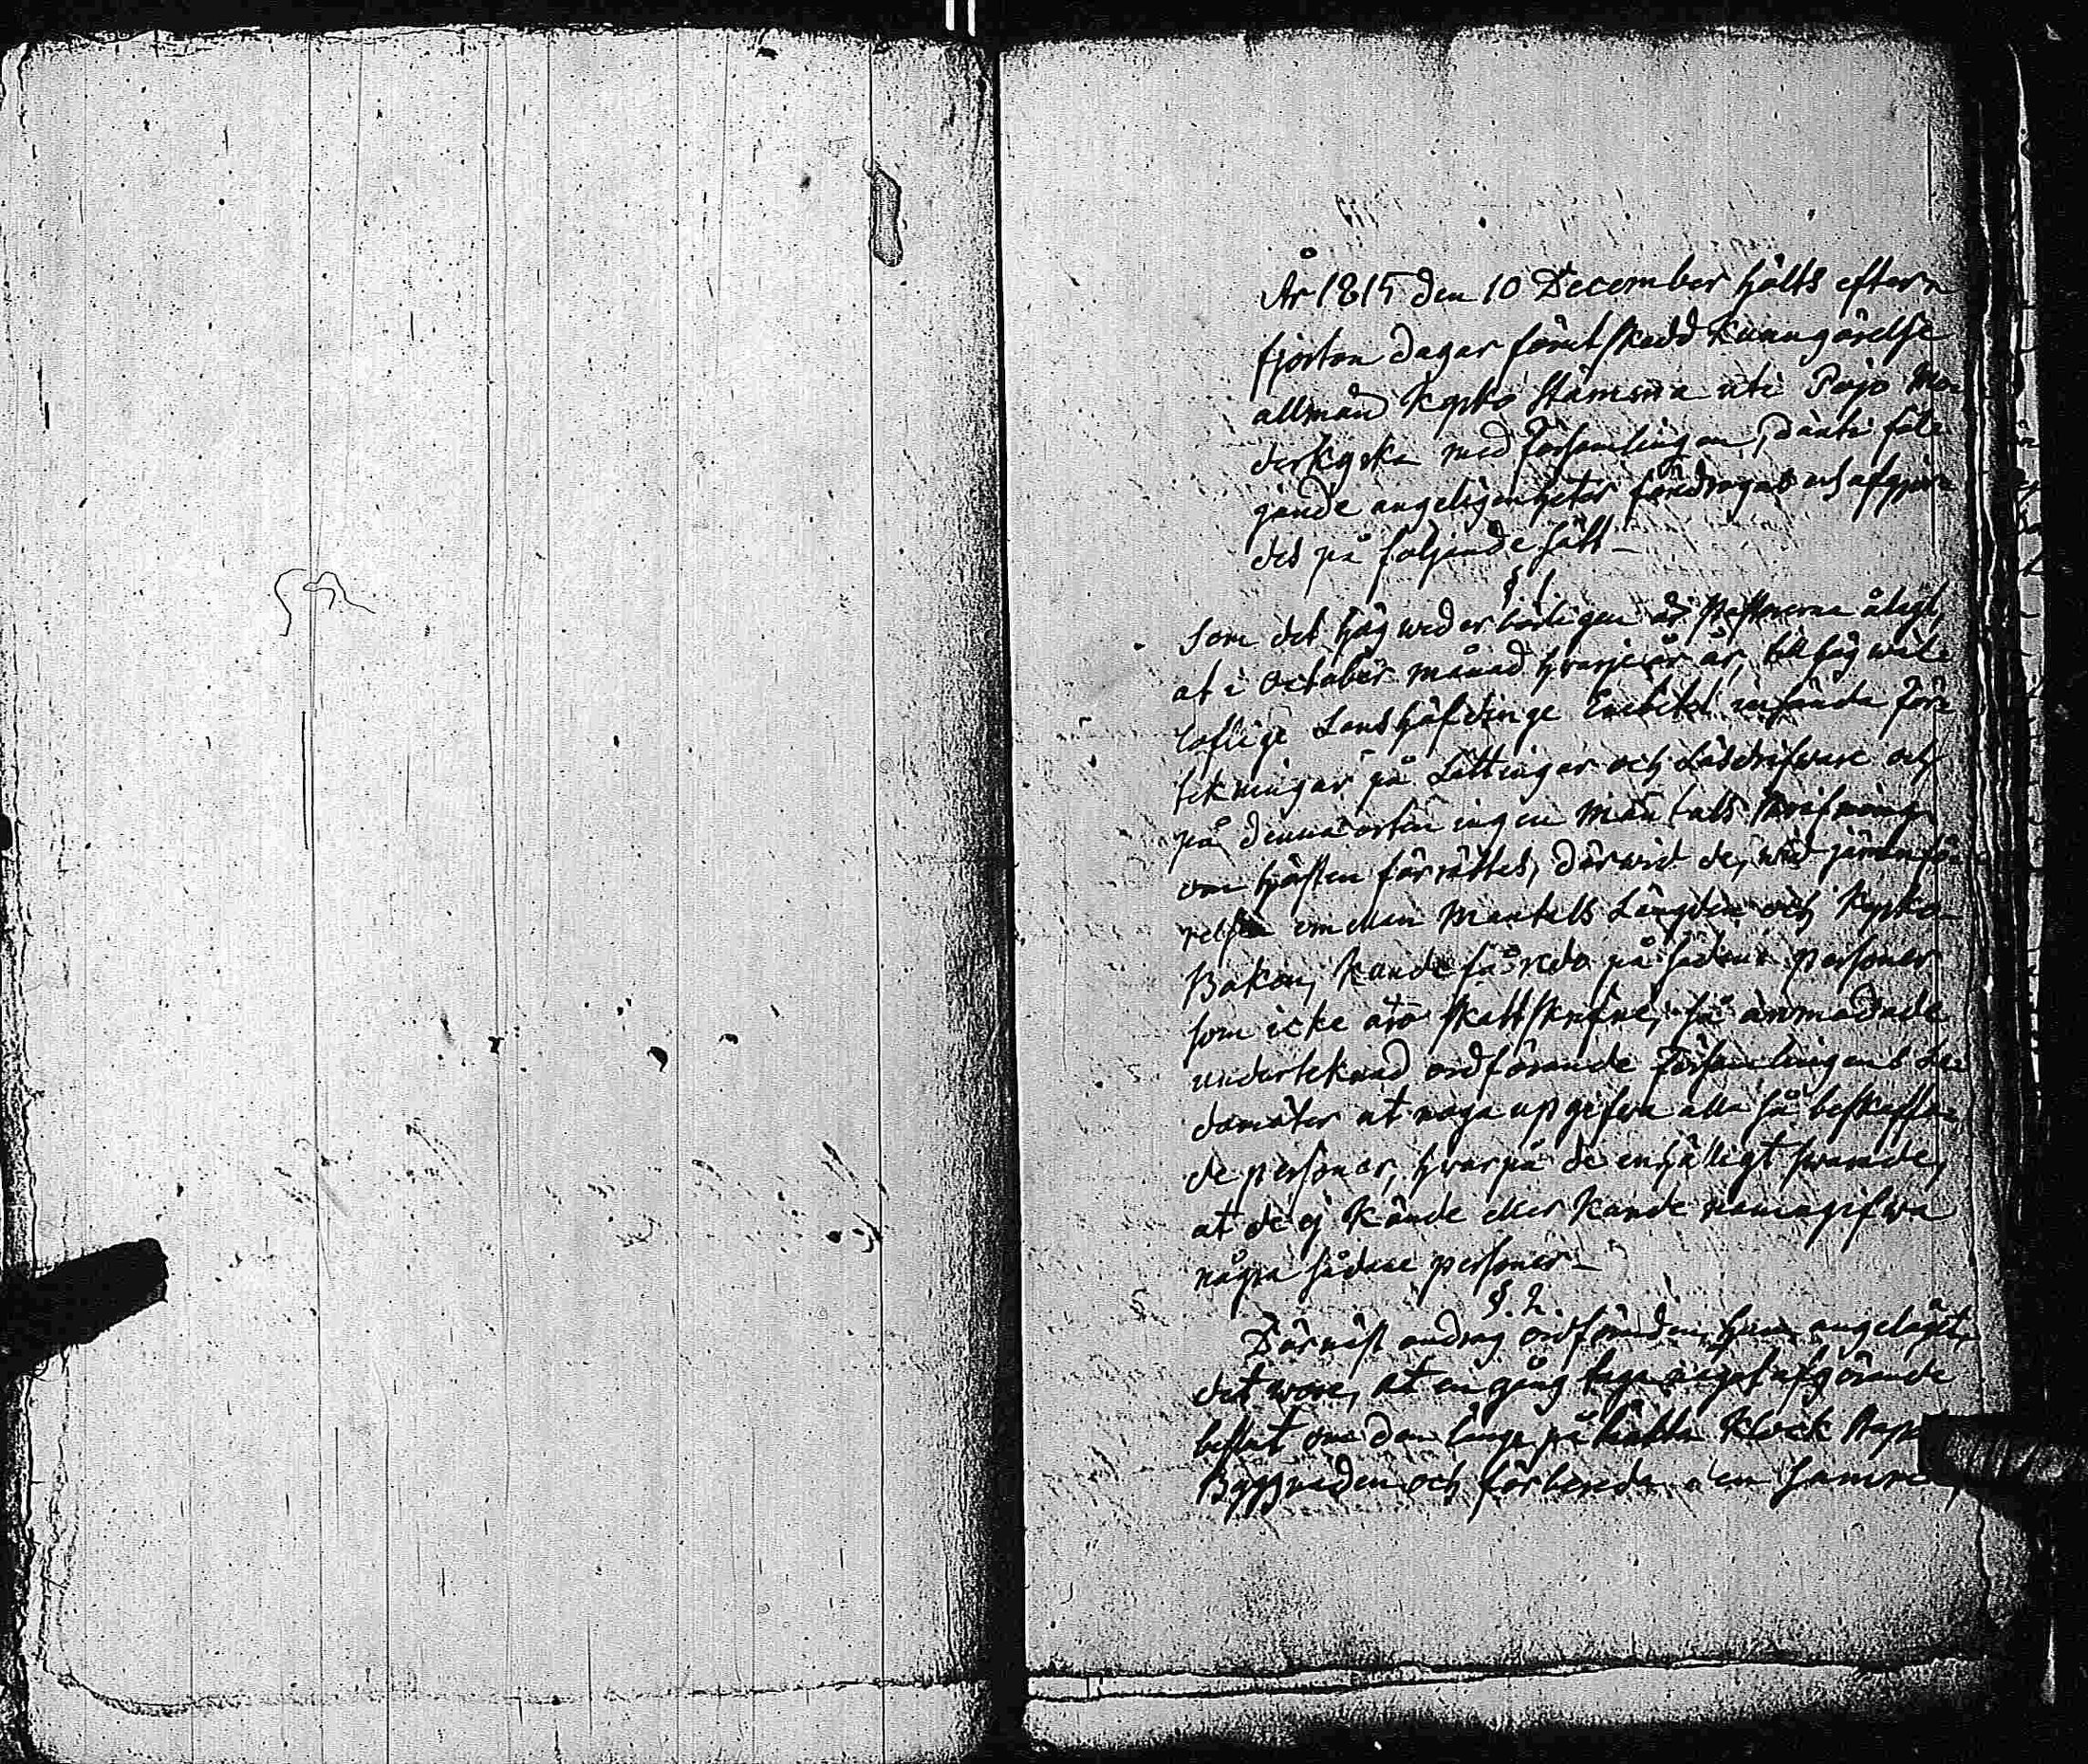 År 1815 den 10 December hölts efter
fjorton dagar förut skedd kunngörelse
allmän Kyrko Stämma uti Pojo Mo-
derkyrka med Församlingen, däuti föl-
jande angelägenheter fördrogos och afgjor-
des på följande sätt-
§ 1
Som det högwederbörligen är Pastorerna ålagt,
at i October månad hvarje år, till hög wäl-
loflige Landshöfdinge Embetet insända för-
tekningar på Lättingar och Lösdrifware och
på denna orten ingen Mantals skrifning
om hösten förrättes, därwid de, wid jämnfö-
relsen emellan Mantals Längden och Kyrko-
Boken, kunde få reda på sådana personer
som icke äro skattskrifne, så anmodade
undertecknad ordförande Församlingens Le-
damöter at noga upgifwa alla så beskaffa-
de personer, hvarpå de enhälligt swarade,
at de ej kände eller kunde namngifwa
några sådane personer-
§. 2.
Därnäst androg ordföranden, huru angeläget
det wore, at en gång taga något afgörande
beslut om den länge påtänkta Klock Stap
Byggnaden och förbereda den samma,